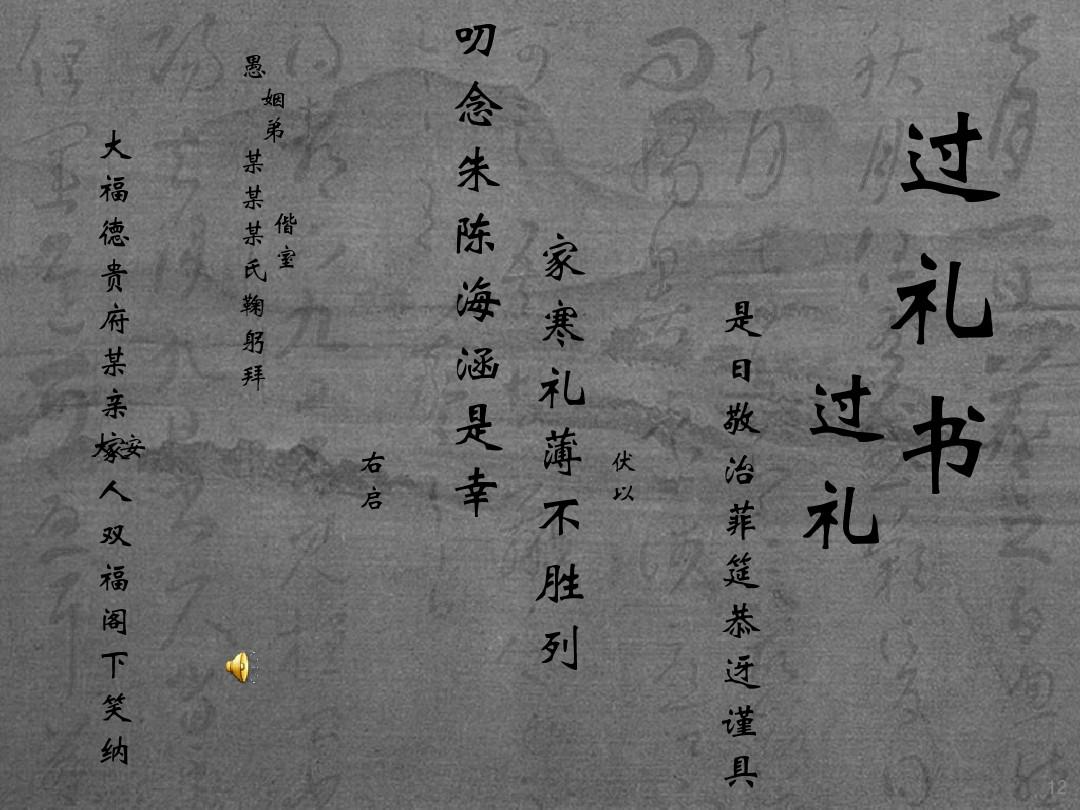 过礼书
过礼
是日敬治菲筵恭迓谨具
伏以
家寒礼薄不胜列
叨念朱陈海涵是幸
右启
愚姻弟某某某氏鞠躬拜
偕室
大福德贵府某亲
人双福阁下笑纳
12